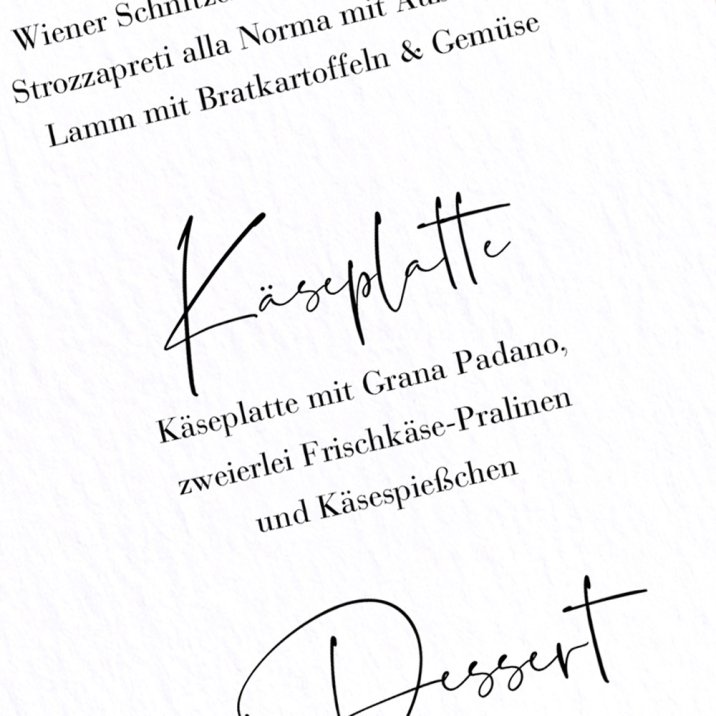 Wiener
Strozzapreti alla Norma mit
Lamm mit Bratkartoffeln & Gemüse
Käseplatte
Käseplatte mit Grana Padano,
zweierlei Frischkäse-Pralinen
und Käsespießchen
Dessert